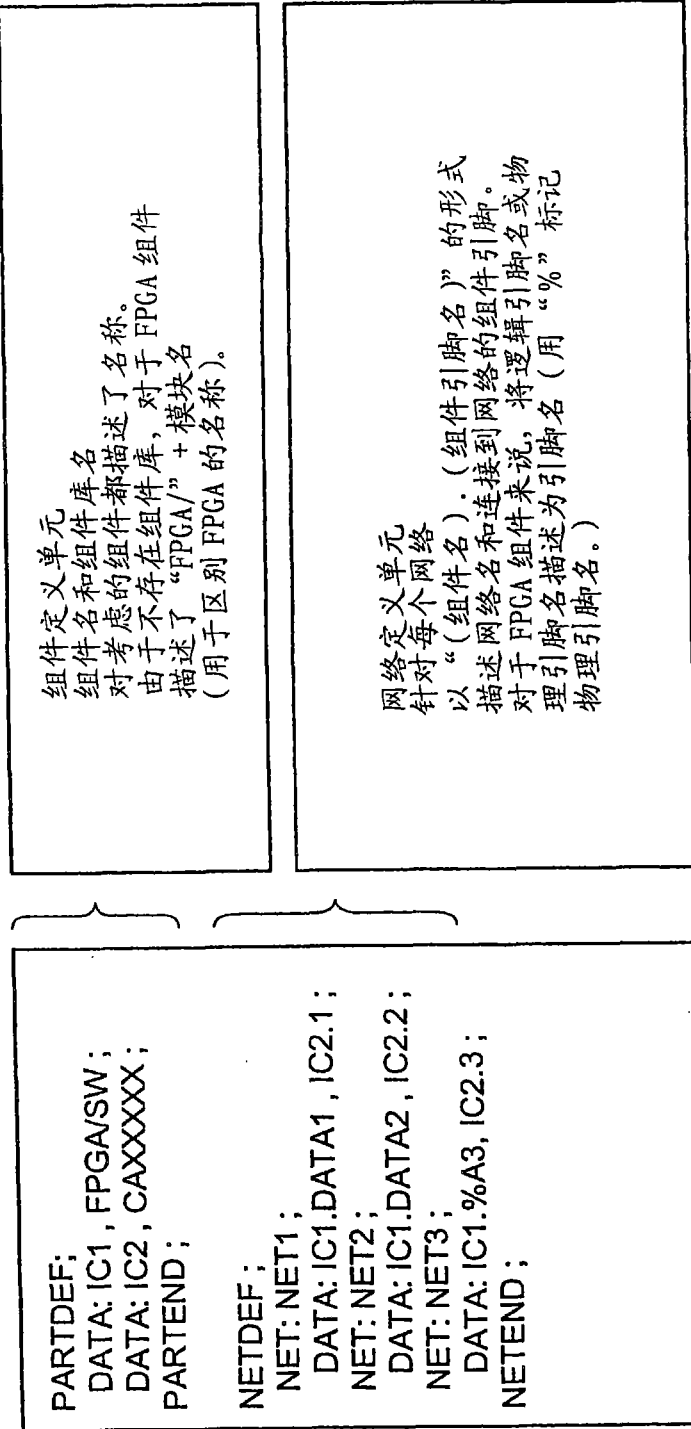 PARTDEF;
DATA: IC1 , FPGA/SW ;
DATA: IC2 , CAXXXXX ;
PARTEND ;
NETDEF ;
NET: NET1 ;
DATA: IC1.DATA1 , IC2.1 ;
NET: NET2 ;
DATA: IC1.DATA2 , IC2.2 ;
NET: NET3 ;
DATA: IC1.%A3, IC2.3 ;
NETEND ;
组件定义单元
组件名和组件库名
对考虑的组件都描述了名称。
由于不存在组件库，对于 FPGA 组件
描述了 “FPGA/” + 模块名
(用于区别 FPGA 的名称)。
网络定义单元
针对每个网络
以 “(组件名).(组件引脚名)” 的形式
描述网络名和连接到网络的组件引脚。
对于 FPGA 组件来说，将逻辑引脚名或物
理引脚名描述为引脚名 (用 “%” 标记
物理引脚名。)